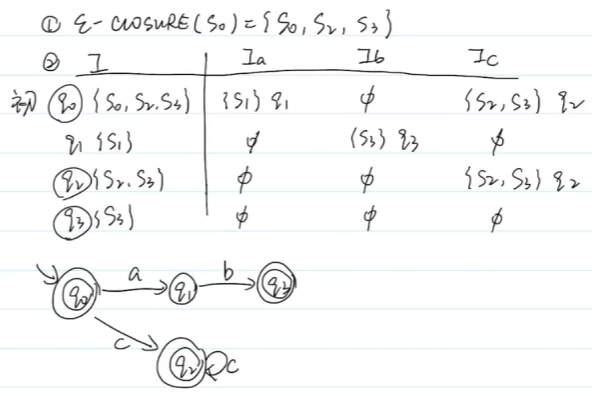 ① ε-CLOSURE(S0)={S0, S2, S3}
② I Ia Ib Ic
初 q0 {S0, S2.S3} {S1} q1 ϕ {S2, S3} q2
q1 {S1} ϕ {S3} q3 ϕ
q2 {S2.S3} ϕ ϕ {S2, S3} q2
q3 {S3} ϕ ϕ ϕ
q0 a q1 b q3
c q2 c